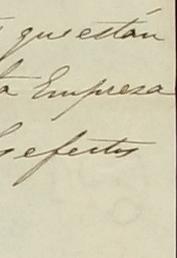 que están
Empresa
efectos